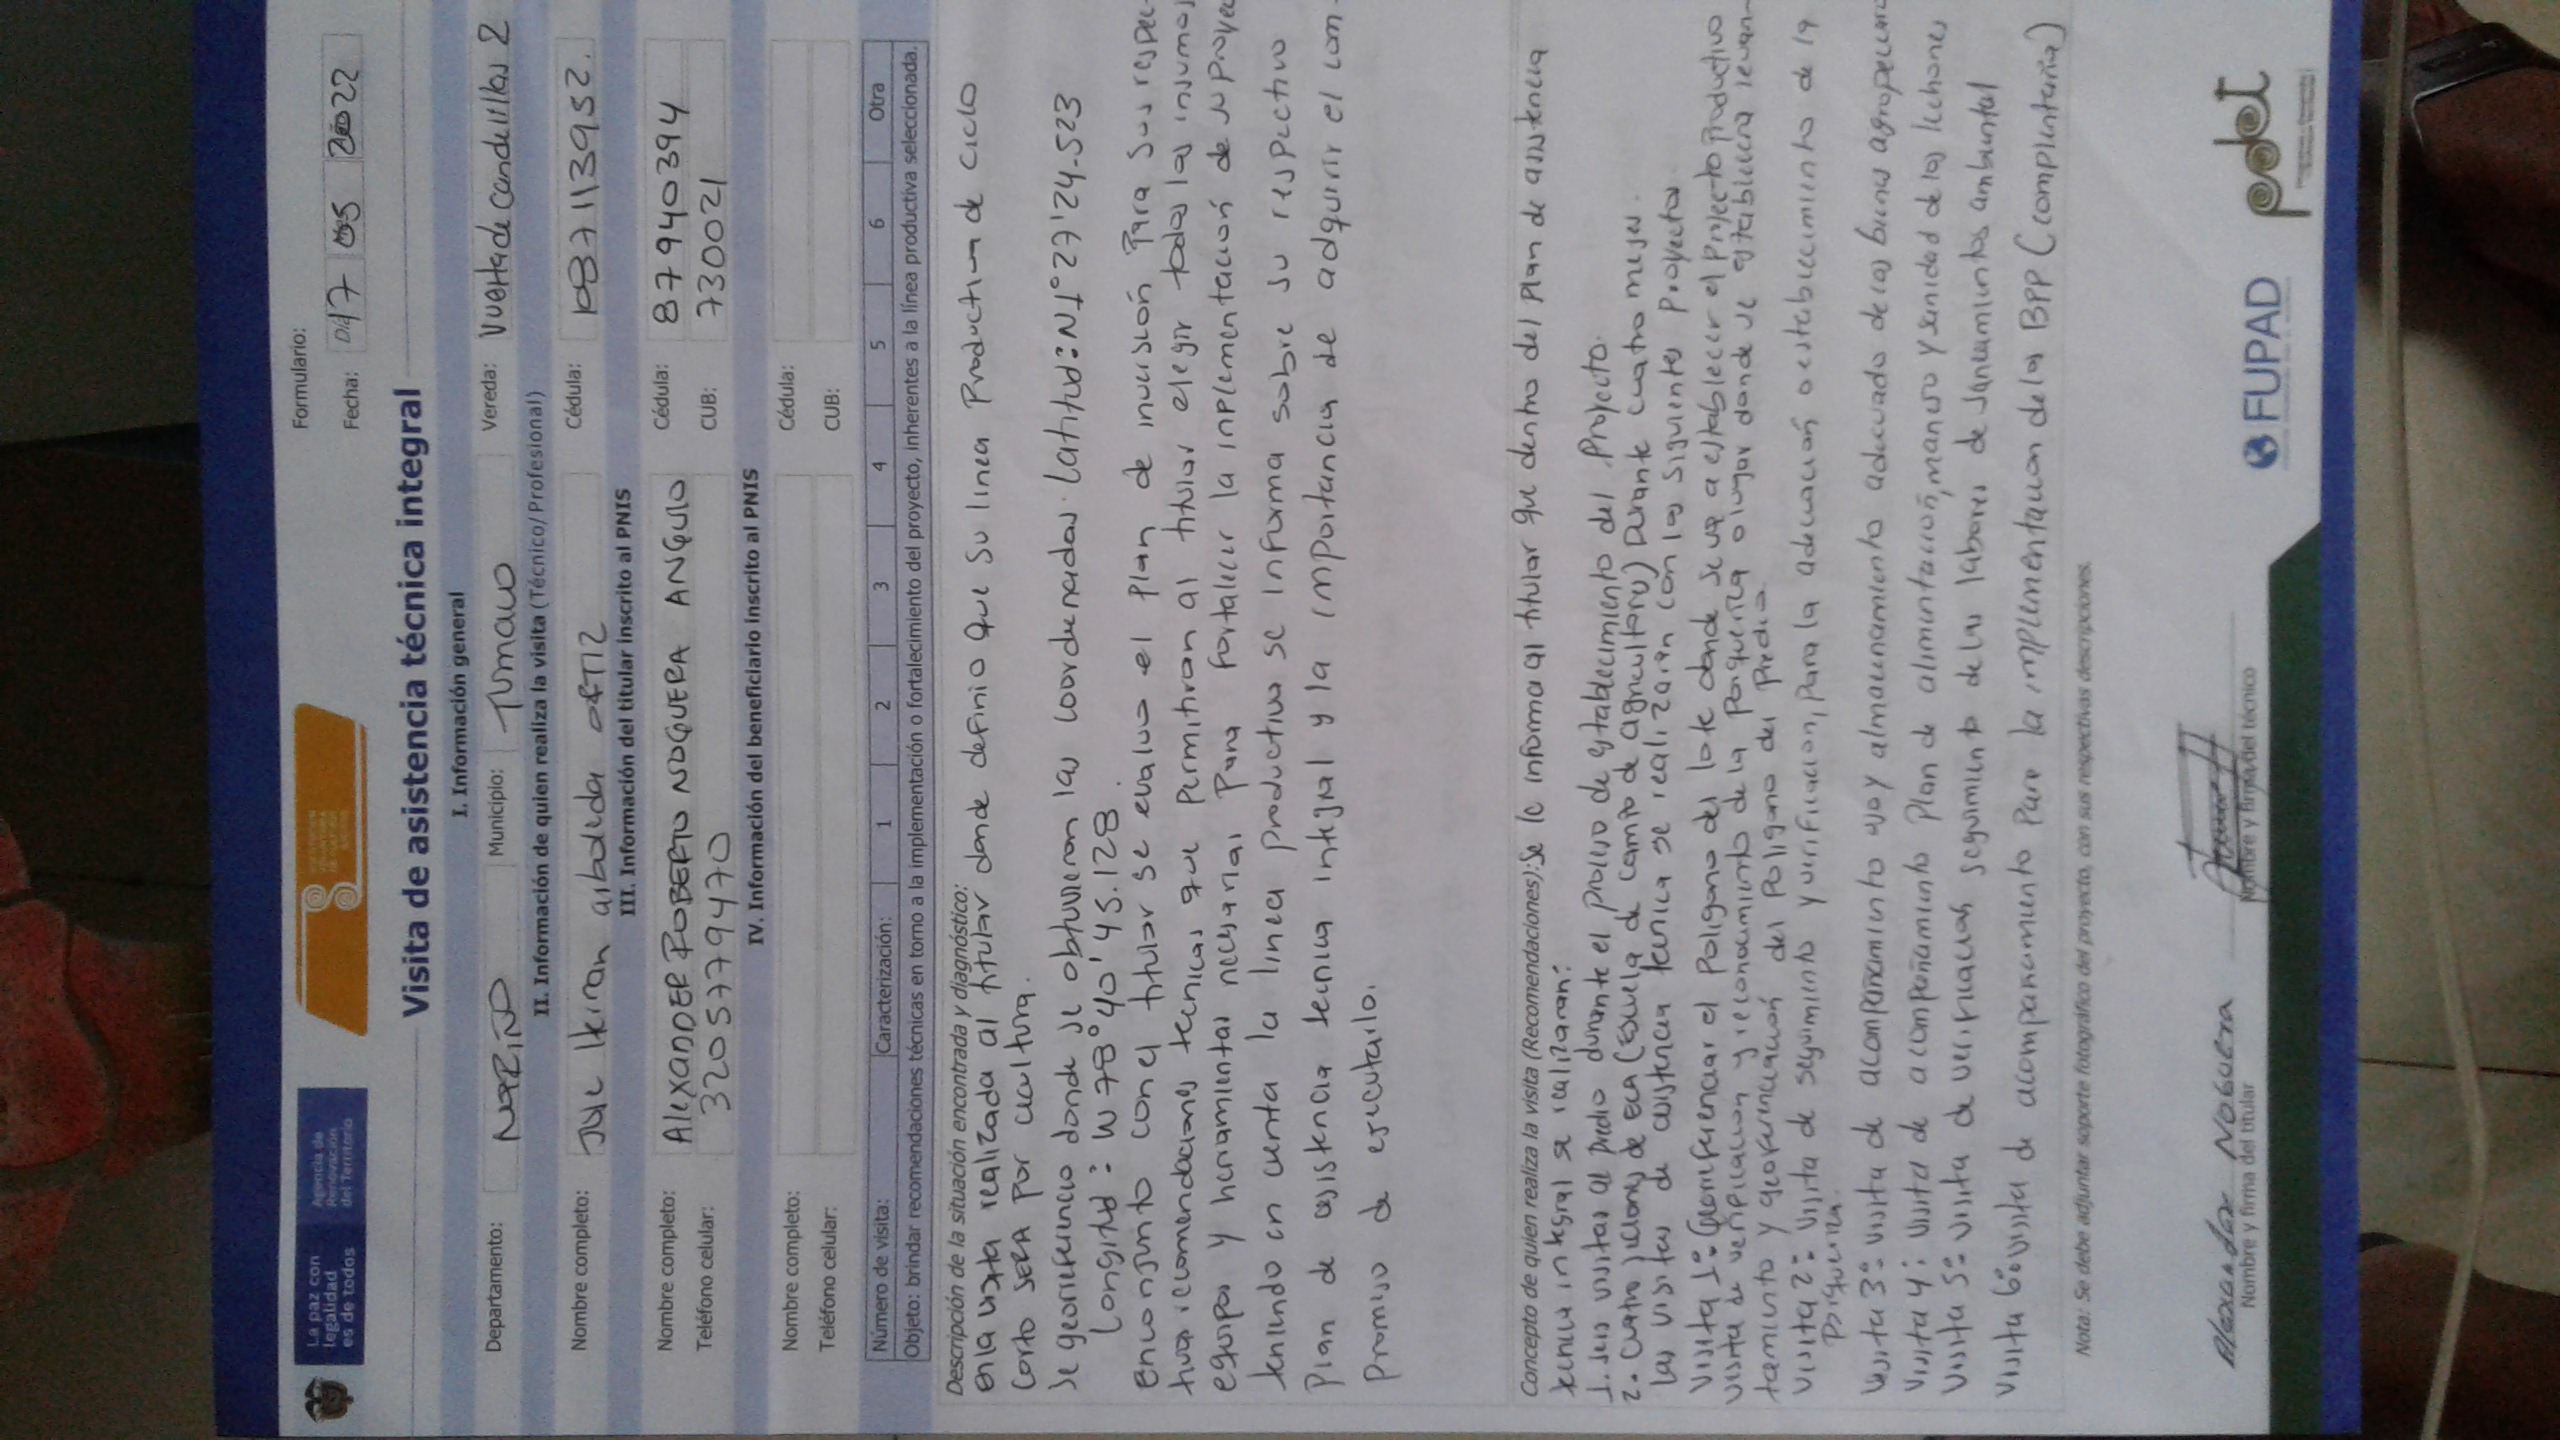 La paz con
legalidad
es de todos
Agencia de
Renovación
del Territorio
Formulario:
Fecha: 17 05 2022
Visita de asistencia técnica integral
I. Información general
Departamento: NARIÑO Municipio: TUMACO Vereda: Vuelta de candelillas 2
II. Información de quien realiza la visita (Técnico/ Profesional)
Nombre completo: ORTIZ Cédula: 1087113952.
III. Información del titular inscrito al PNIS
Nombre completo: AleXANDER ROBERTO NOGUERA ANGULO Cédula: 87940394
Teléfono celular: 3205779470 CUB: 730021
IV. Información del beneficiario inscrito al PNIS
Nombre completo: Cédula:
Teléfono celular: CUB:
Número de visita: Caracterización: 1 2 3 4 5 6 Otra
Objeto: brindar recomendaciones técnicas en torno a la implementación o fortalecimiento del proyecto, inherentes a la línea productiva seleccionada.
Descripción de la situación encontrada y diagnóstico:
en la visita realizada al titular donde definio que su linea Productiva de ciclo
corto SERA por cicultura.
se georreferencio donde se obtuvieron las coordenadas. Latitud: N1°27'24.523
Longitud: W 78°40'45.128.
en conjunto con el titular se evaluo el Plan de inversión Para sus respec-
tivas recomendaciones tecnicas que Permitiran al titular elegir todos los insumos
equipos y herramientas necesarias Para fortalecer la inplementación de su proyec
teniendo en cuenta la linea productiva se informa sobre su respectivo
Plan de asistencia tecnica integral y la importancia de adquirir el com-
promiso de ejecutarlo.
Concepto de quien realiza la visita (Recomendaciones): Se le informa al titular que dentro del Plan de asistencia
tecnica integral se realizaran:
1. seis visitas al predio durante el proceso de establecimiento del Proyecto.
2. cuatro sesiones de eca (escuela de campo de agricultores) Durante cuatro meses.
Las visitas de asistencia tecnica se realizarán con los siguientes Proyectos.
Visita 1: Georreferenciar el Poligono del lote donde se va a establecer el Proyecto Productivo
visita de verificacion y reconocimiento de la Porqueriza o lugar donde se establecera levan-
tamiento y georeferenciación del Poligono del Predio.
Visita 2: Visita de seguimiento y verificacion, Para la adecuación o establecimiento de la
Porqueriza.
Visita 3: visita de acompañamiento y almacenamiento adecuado de los bienes agropecuario
Visita 4: Visita de acompañamiento Plan de alimentación, manejo y sanidad de los lechones
Visita 5: visita de verificación, seguimiento de las labores de saneamientos ambiental
Visita 6: visita de acompanamiento Para la implementacion de las BPP (complementaria)
Nota: Se debe adjuntar soporte fotográfico del proyecto, con sus respectivas descripciones.
Alexander NOGUERA
Nombre y firma del titular
Nombre y firma del técnico
FUPAD
pdet